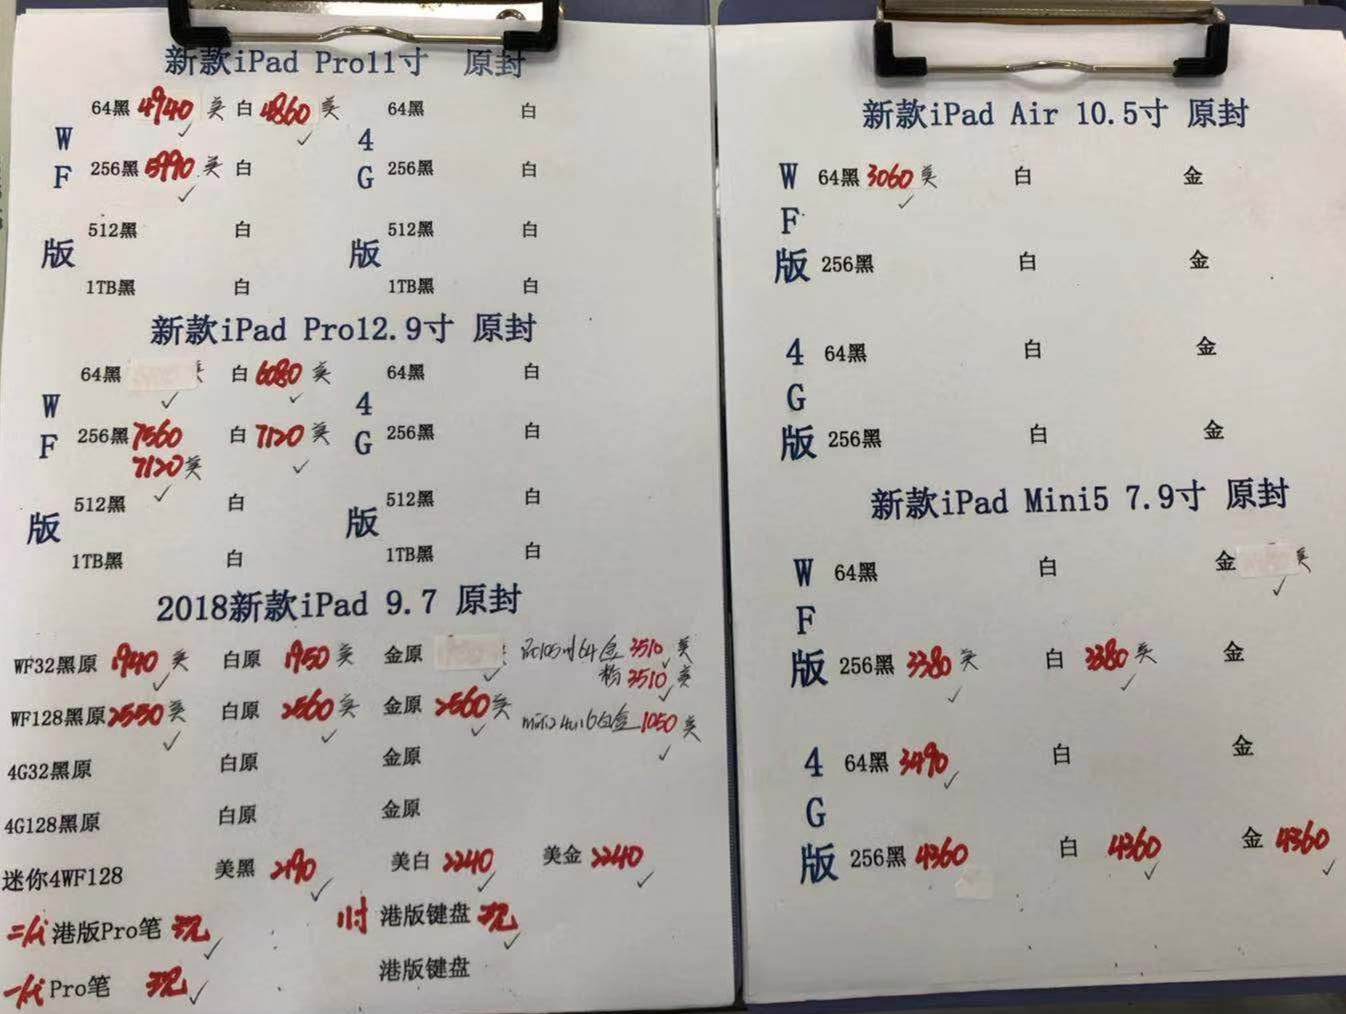 新款iPad Pro11寸 原封
WF版 4G版
64黑 4940 美 白 4860 美 64黑 白
256黑 5990 美 白 256黑 白
512黑 白 512黑 白
1TB黑 白 1TB黑 白
新款iPad Pro12.9寸 原封
WF版 4G版
64黑 美 白 6080 美 64黑 白
256黑 7560 白 7120 美 256黑 白
7120 美
512黑 白 512黑 白
1TB黑 白 1TB黑 白
2018新款iPad 9.7 原封
WF32黑原 1940 美 白原 1950 美 金原
WF128黑原 2550 美 白原 2560 美 金原 2560 美
4G32黑原 白原 金原
4G128黑原 白原 金原
迷你4WF128 美黑 2190 美白 2240 美金 2240
二代 港版Pro笔 现 11寸 港版键盘 现
一代 Pro笔 现 港版键盘
64金 3510 美
3510 美
mini2 1050 美
新款iPad Air 10.5寸 原封
WF版
64黑 3060 美 白 金
256黑 白 金
4G版
64黑 白 金
256黑 白 金
新款iPad Mini5 7.9寸 原封
WF版
64黑 白 金 美
256黑 3380 美 白 3380 美 金
4G版
64黑 3490 白 金
256黑 4360 白 4360 金 4360